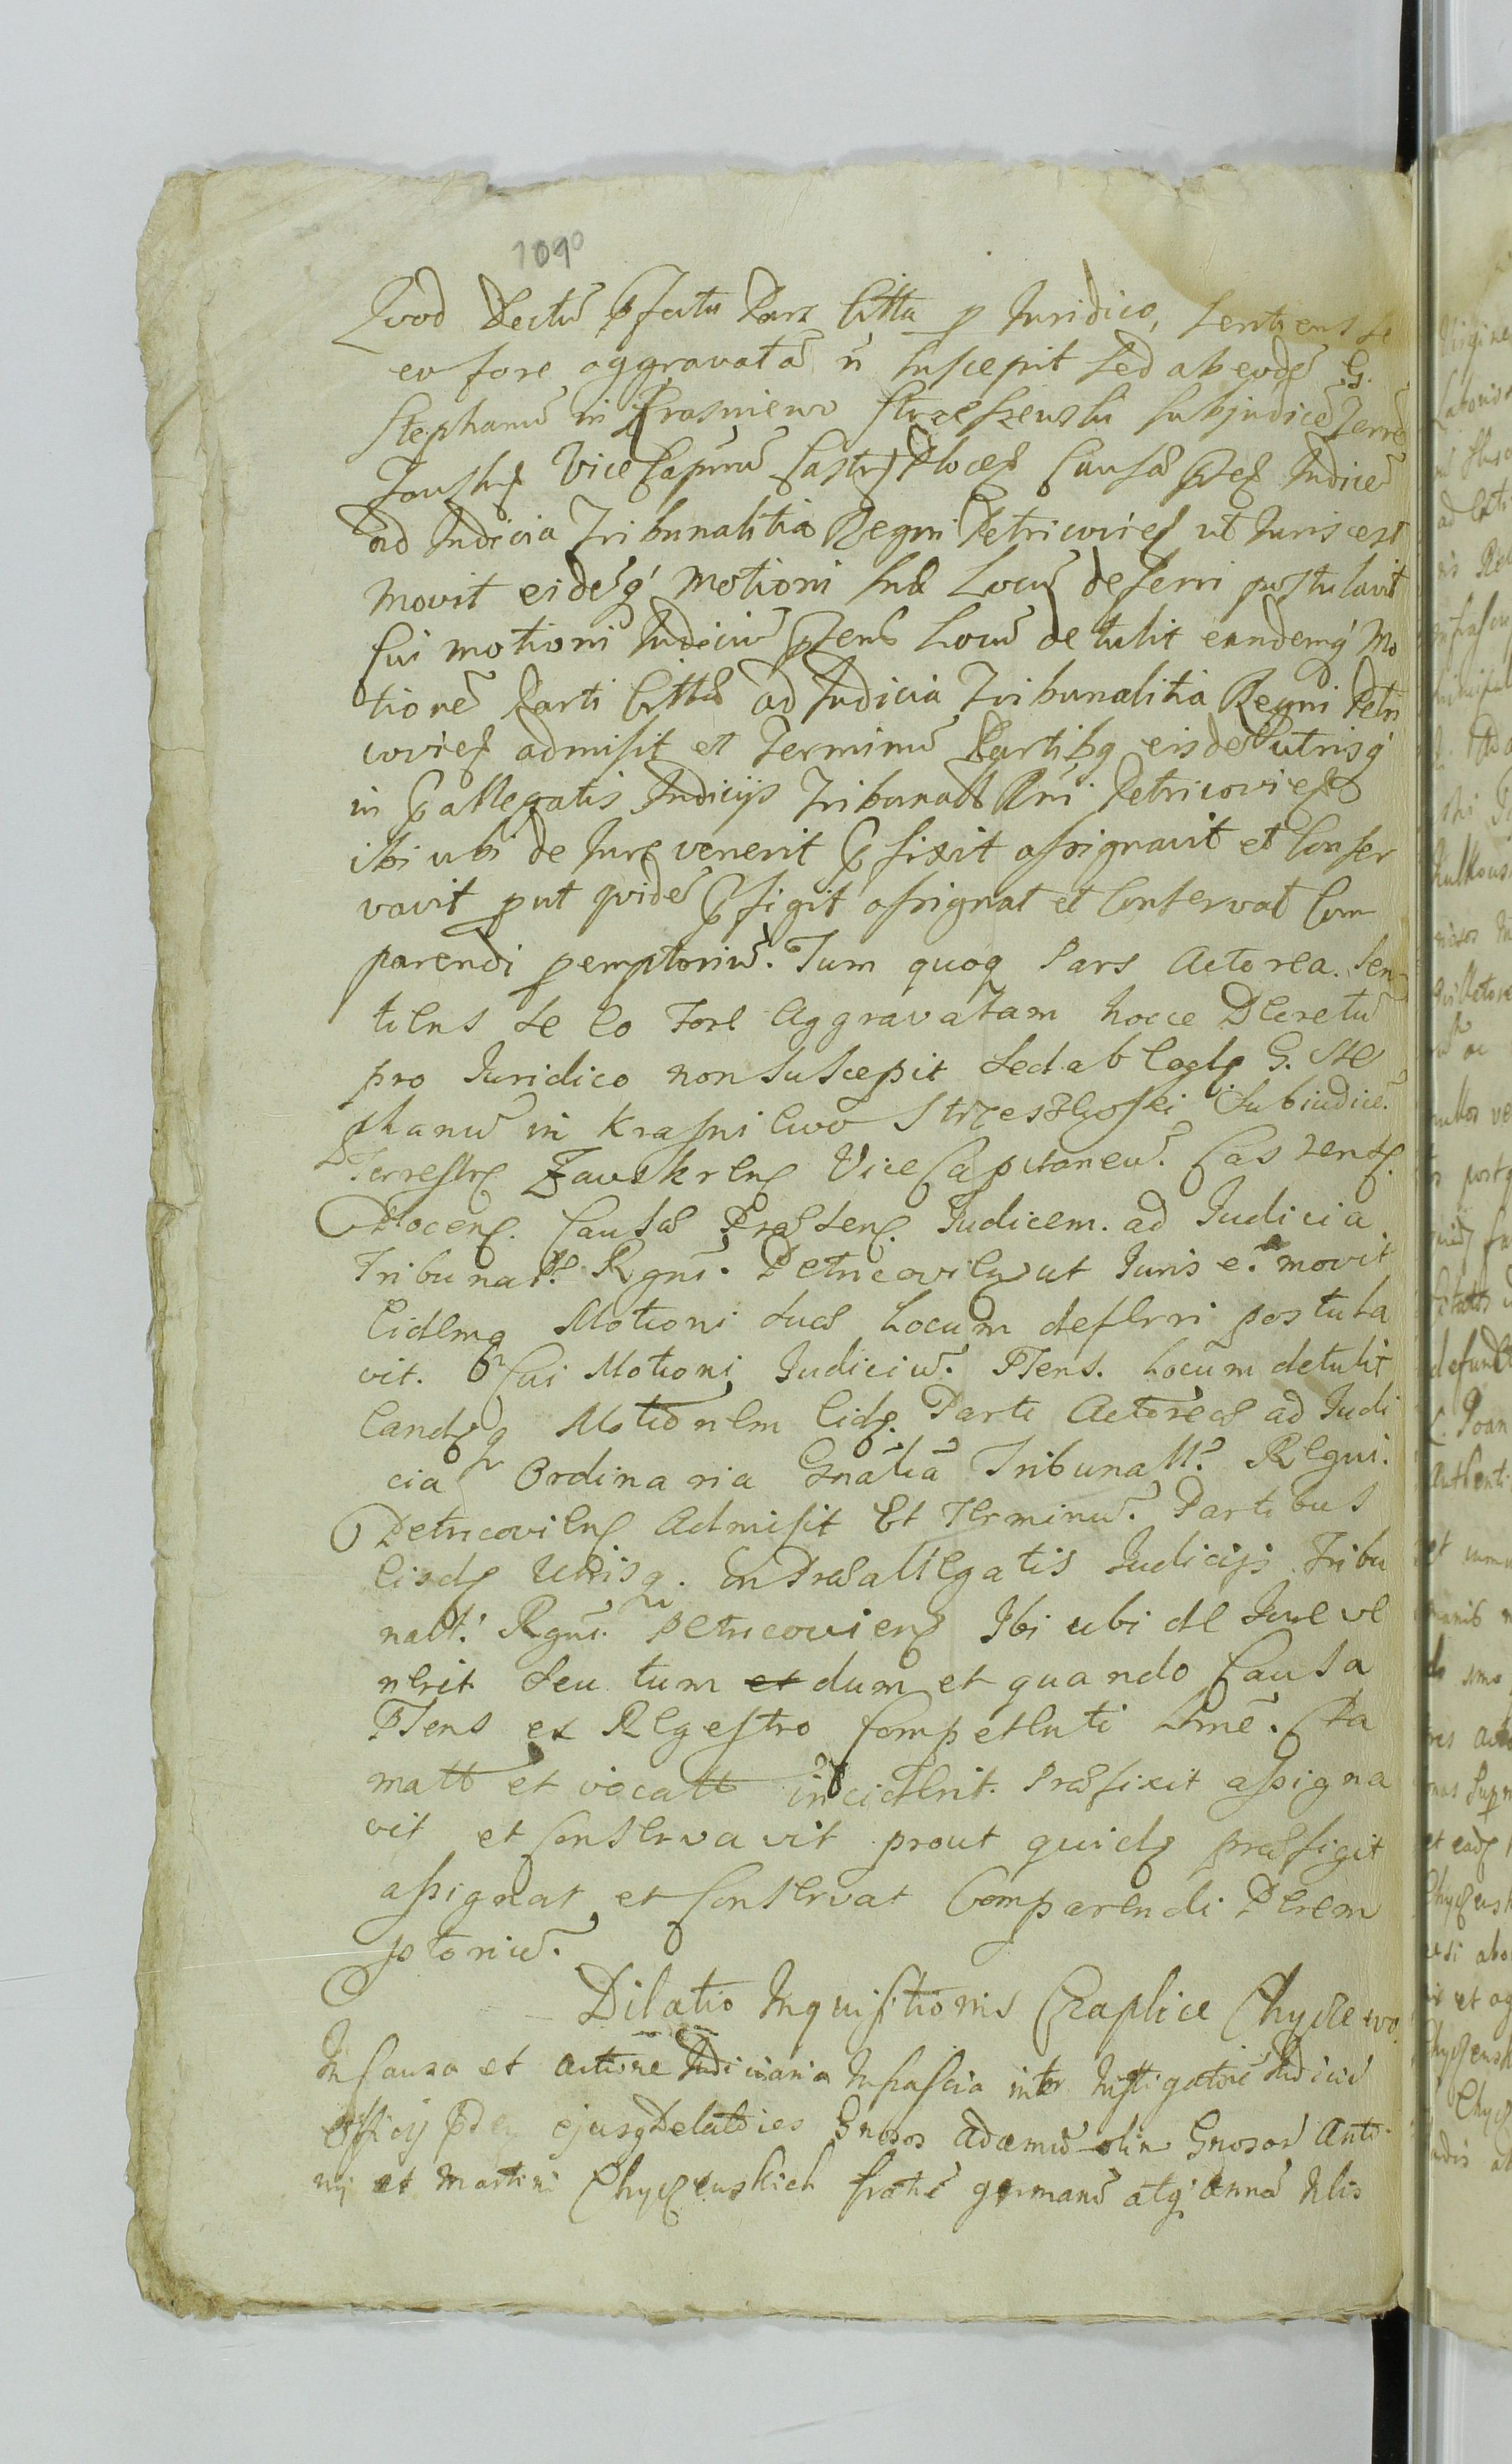 1090
Quod Dectũ Pfata Pars Citta p Juridico, Sentiens se
eo fore aggravatã ñ suscepit sed ab eodẽ G.
Stephanũ in Krasniewo Strzeszewski subjudicẽ Terre
Zauskr Vice Capnũ Castr Plocen Causæ Pnt Judicẽ
ad Judicia Tribunalitia Regni Petricovien ut Juris est
movit eidẽq motioni suæ Locũ deferri postulavit
Cui motioni Judiciũ Pzens Locũ detulit eandemq Mo
tionẽ Parti Cittæ ad Judicia Tribunalitia Regni Petri
covien admisit et Terminũ Partibq eisdẽ utrisq
in Pallegatis Judicijs Tribunalt Rni Petricovien
ibi ubi de Jure venerit Pfixit assignavit et Conser
vavit put qvidẽ Pfigit assignat et Conservat Com
parendi pemptoriũ. Tum quoq Pars Actorea. Sen
tiens se eo fore Aggravatam hocce Decretũ
pro Juridico non suscepit sed ab eodę G. Ste
phanũ in Krasniewo Strzeszewski Subiudicẽ
Terrestrę Zauskrenę Vice Capitaneũ. Castrensę
Plocenę. Causæ Præsenę. Judicem. ad Judicia
Tribunal Rgni. Petricovienę ut Juris e. movit
Eidemq Motioni suæ Locum deferri postula
vit. Cui Motioni Judiciũ. Pzens. Locum detulit
Eandęq Motionem Eidę. Parti Actoreæ ad Judi
cia Ordinaria Gnalia Tribunalt. Regni.
Petricovienę Admisit Et Terminũ. Partibus
Eisdę Utrisq. in Præallegatis Judicijs Tribu
nalt. Rgni. Petricovienę Ibi ubi de Jure ve
nerit seu tum et dum et quando Causa
Pzens ex Regestro Competenti
et vocatt inciderit. Præfixit assigna
vit et Conservavit prout quidę præfigit
assignat et Conservat Comparendi Perem
ptoriũ.
Dilatio Inquisitionis Chyczewo.
In Causa et actione Judiciaria Infrascia inter Instigatorẽ Judicii
officij ejusq Delatores Gnosos Adamũ olim Gnosor Anto
nij et Martini Chyczewskich fratrẽ germanũ atq Annã Nlis